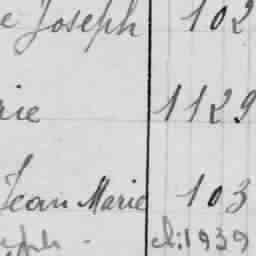 e Joseph 102
rie 1129
Jean Marie 103
eph - cl:1939